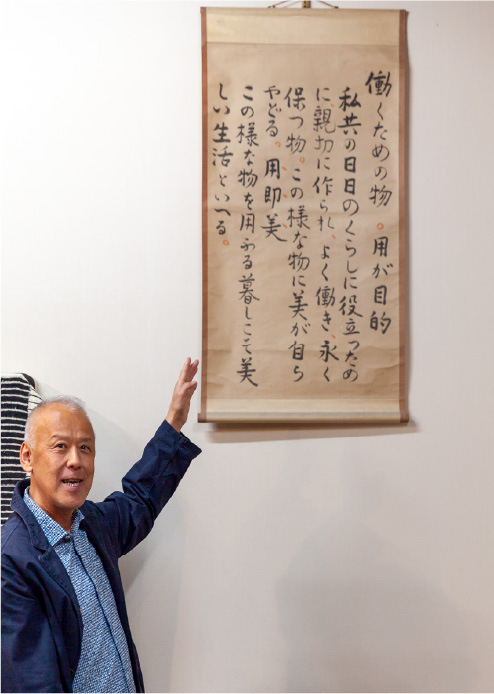 働くための物。用が目的
私共の日日のくらしに役立つため
に、親切に作られ、よく働き、永く
保つ物。この様な物に美が自ら
やどる。用即美
この様な物を用ふる暮しこそ美
しい生活といへる。